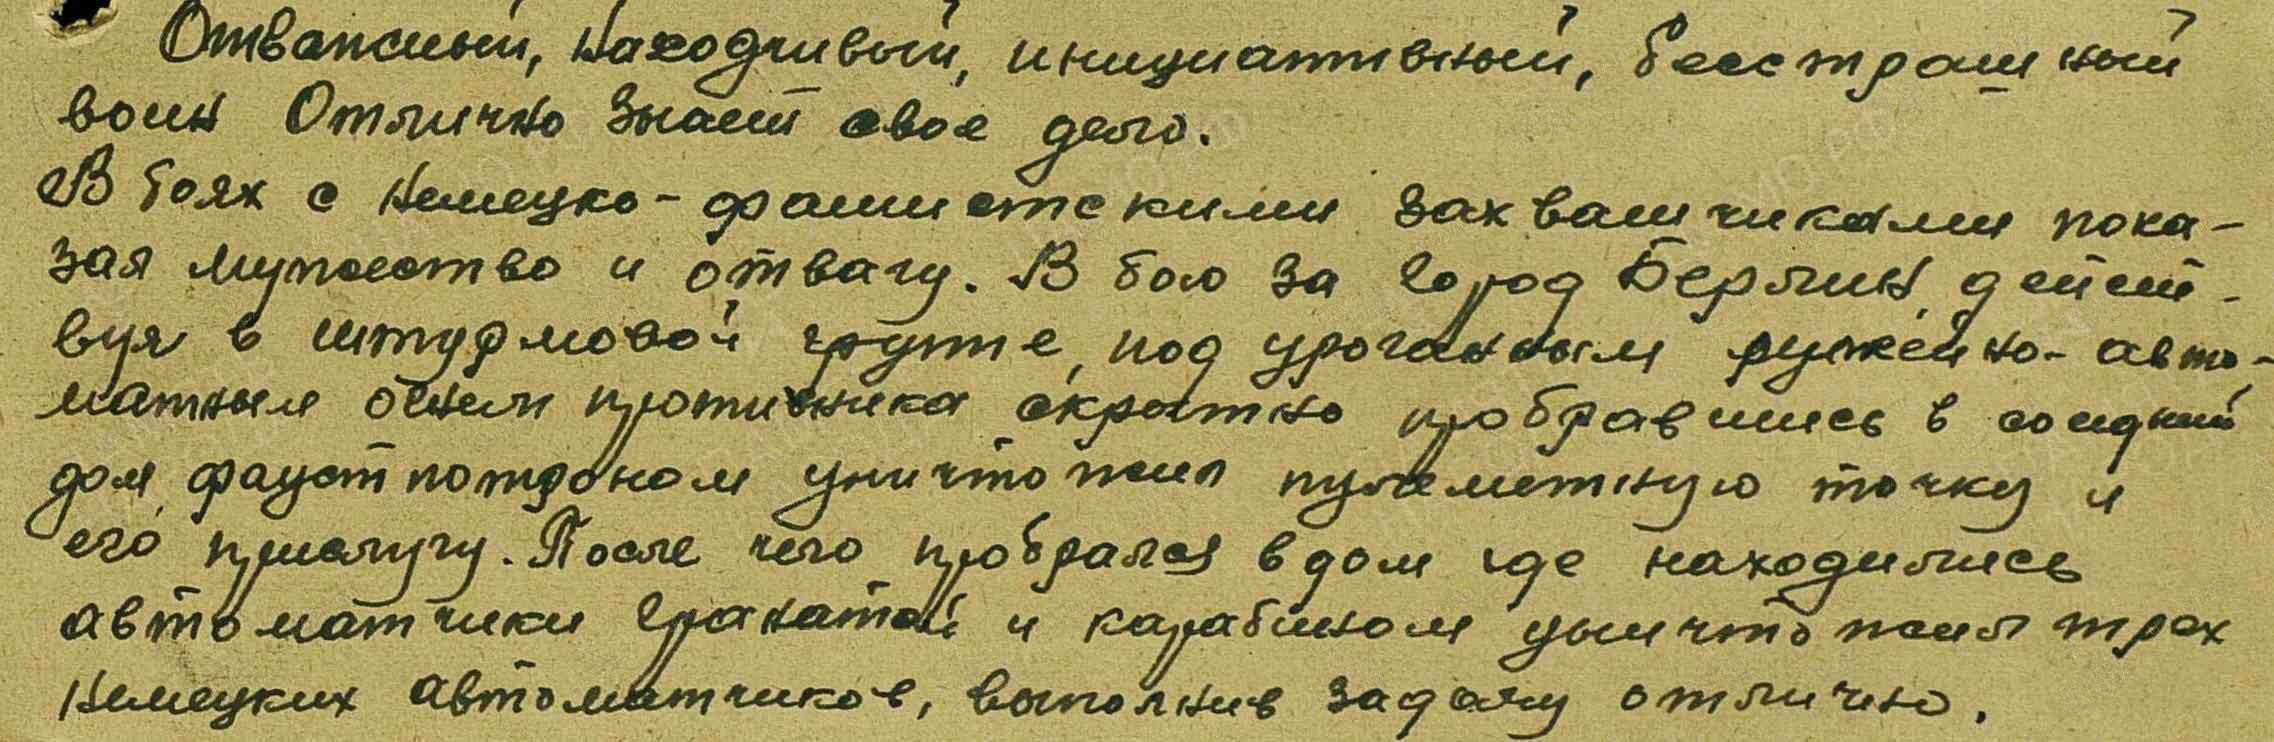 Отважный, находчивый, инициативный, бесстрашный
воин Отлично знает свое дело.
В боях с немецко-фашистскими захватчиками пока-
зал мужество и отвагу. В бою за город Берлин, дейст-
вуя в штурмовой группе, под ураганным ружейно-авто-
матным огнем противника скрытно пробравшись в соседний
дом, фаустпатроном уничтожил пулеметную точку и
его прислугу. После чего пробрался в дом где находились
автоматчики гранатой и карабином уничтожил трех
немецких автоматчиков, выполнив задачу отлично.